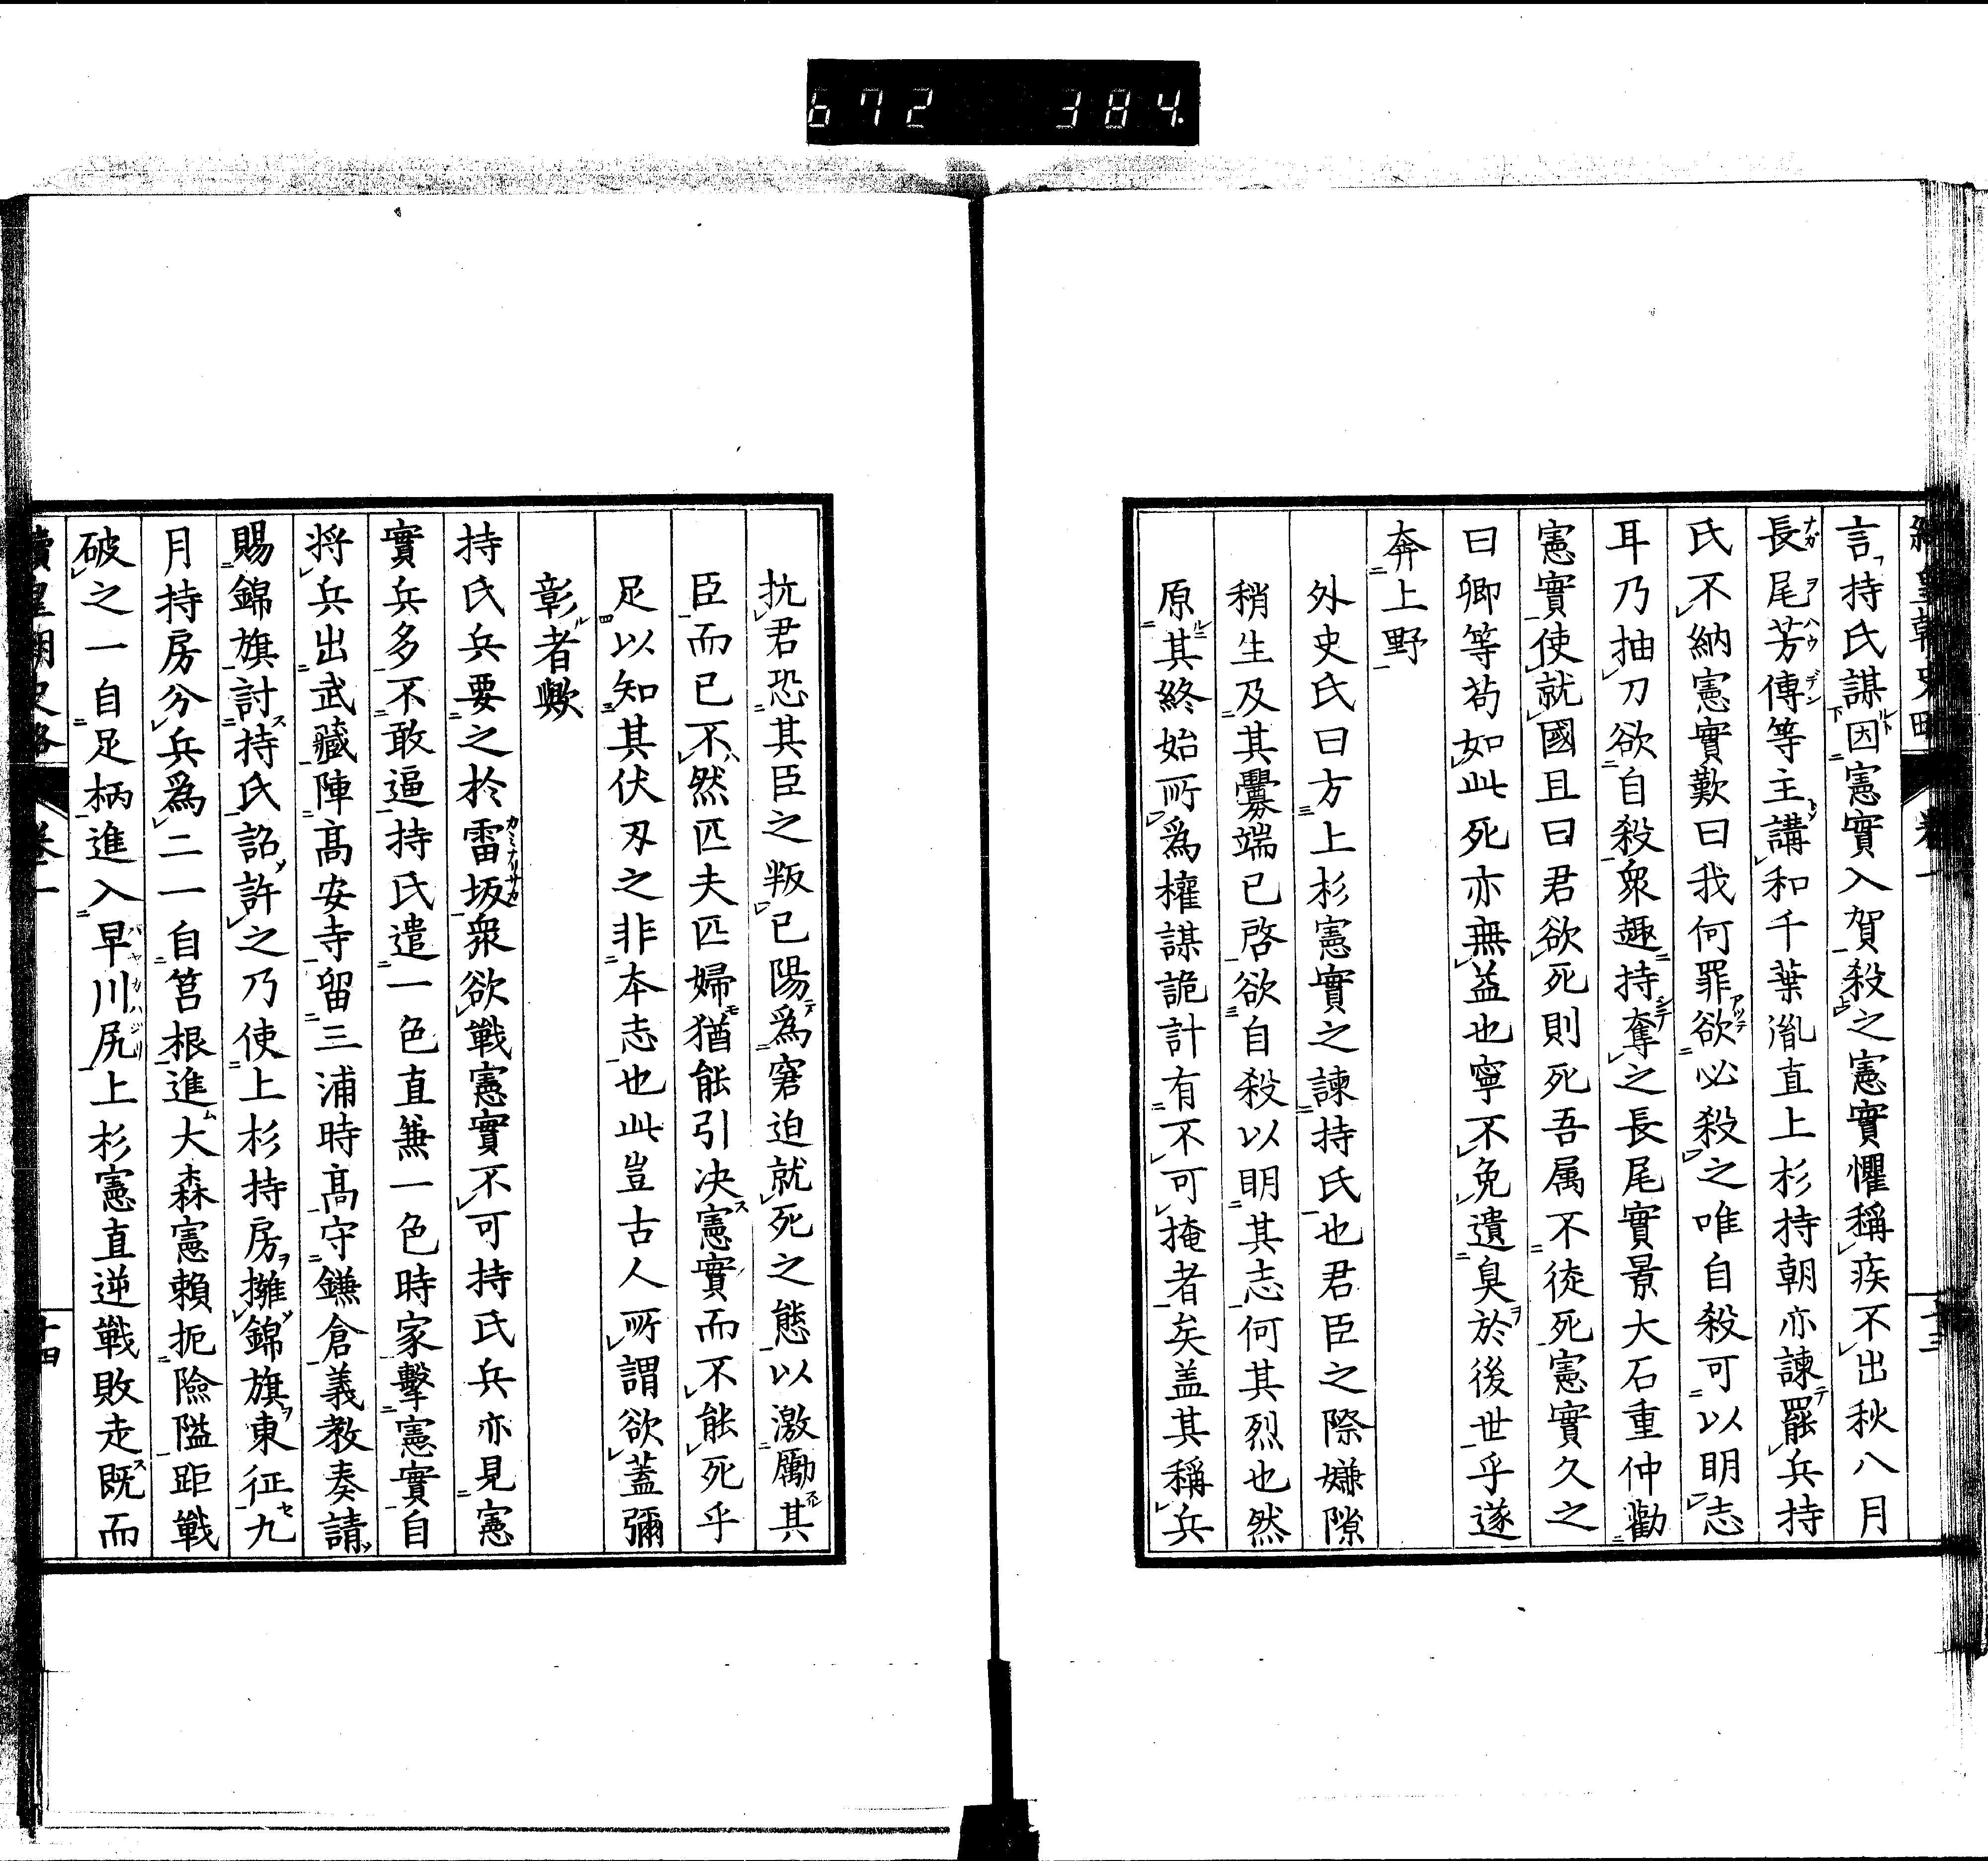 672 384.
續皇朝史略 卷一 十三
言持氏謀因憲實入賀殺之憲實懼稱疾不出秋八月
長尾芳傳等主講和千葉胤直上杉持朝亦諫罷兵持
氏不納憲實歎曰我何罪欲必殺之唯自殺可以明志
耳乃抽刀欲自殺衆趣持奪之長尾實景大石重仲勸
憲實使就國且曰君欲死則死吾属不徒死憲實久之
曰卿等苟如此死亦無益也寧不免遺臭於後世乎遂
奔上野
外史氏曰方上杉憲實之諫持氏也君臣之際嫌隙
稍生及其釁端已啓欲自殺以明其志何其烈也然
原其終始所爲權謀詭計有不可掩者矣盖其稱兵
抗君恐其臣之叛已陽爲窘迫就死之態以激勵其
臣而已不然匹夫匹婦猶能引决憲實而不能死乎
足以知其伏刄之非本志也此豈古人所謂欲蓋彌
彰者歟
持氏兵要之於雷坂衆欲戰憲實不可持氏兵亦見憲
實兵多不敢逼持氏遣一色直兼一色時家擊憲實自
将兵出武藏陣髙安寺留三浦時髙守鎌倉義教奏請
賜錦旗討持氏詔許之乃使上杉持房擁錦旗東征九
月持房分兵爲二一自筥根進大森憲賴扼險隘距戰
破之一自足柄進入早川尻上杉憲直逆戰敗走既而
續皇朝史略 卷一 十四